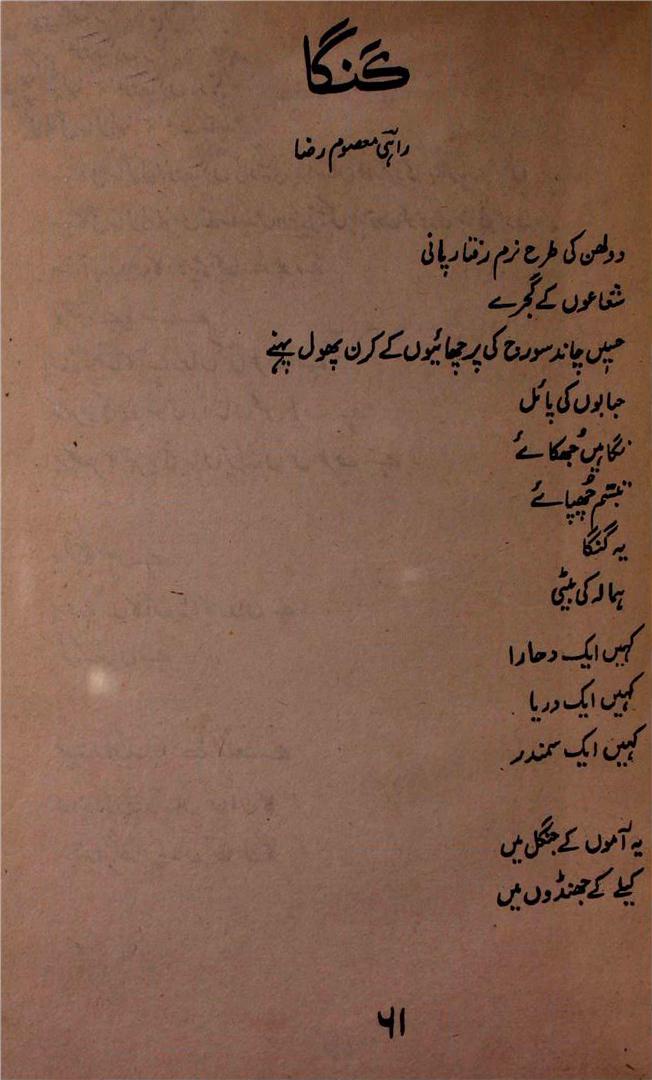 گنگا
راہی معصوم رضا
دولھن کی طرح نرم رفتار پانی
شعاعوں کے گجرے
حسیں چاند سورج کی پرچھائیوں کے کرن پھول پہنے
حبابوں کی پائل
نگاہیں جُھکائے
تبسّم چُھپائے
یہ گنگا
ہمالہ کی بیٹی
کہیں ایک دھارا
کہیں ایک دریا
کہیں ایک سمندر
یہ آموں کے جنگل میں
کیلے کے جھنڈوں میں
۶۱